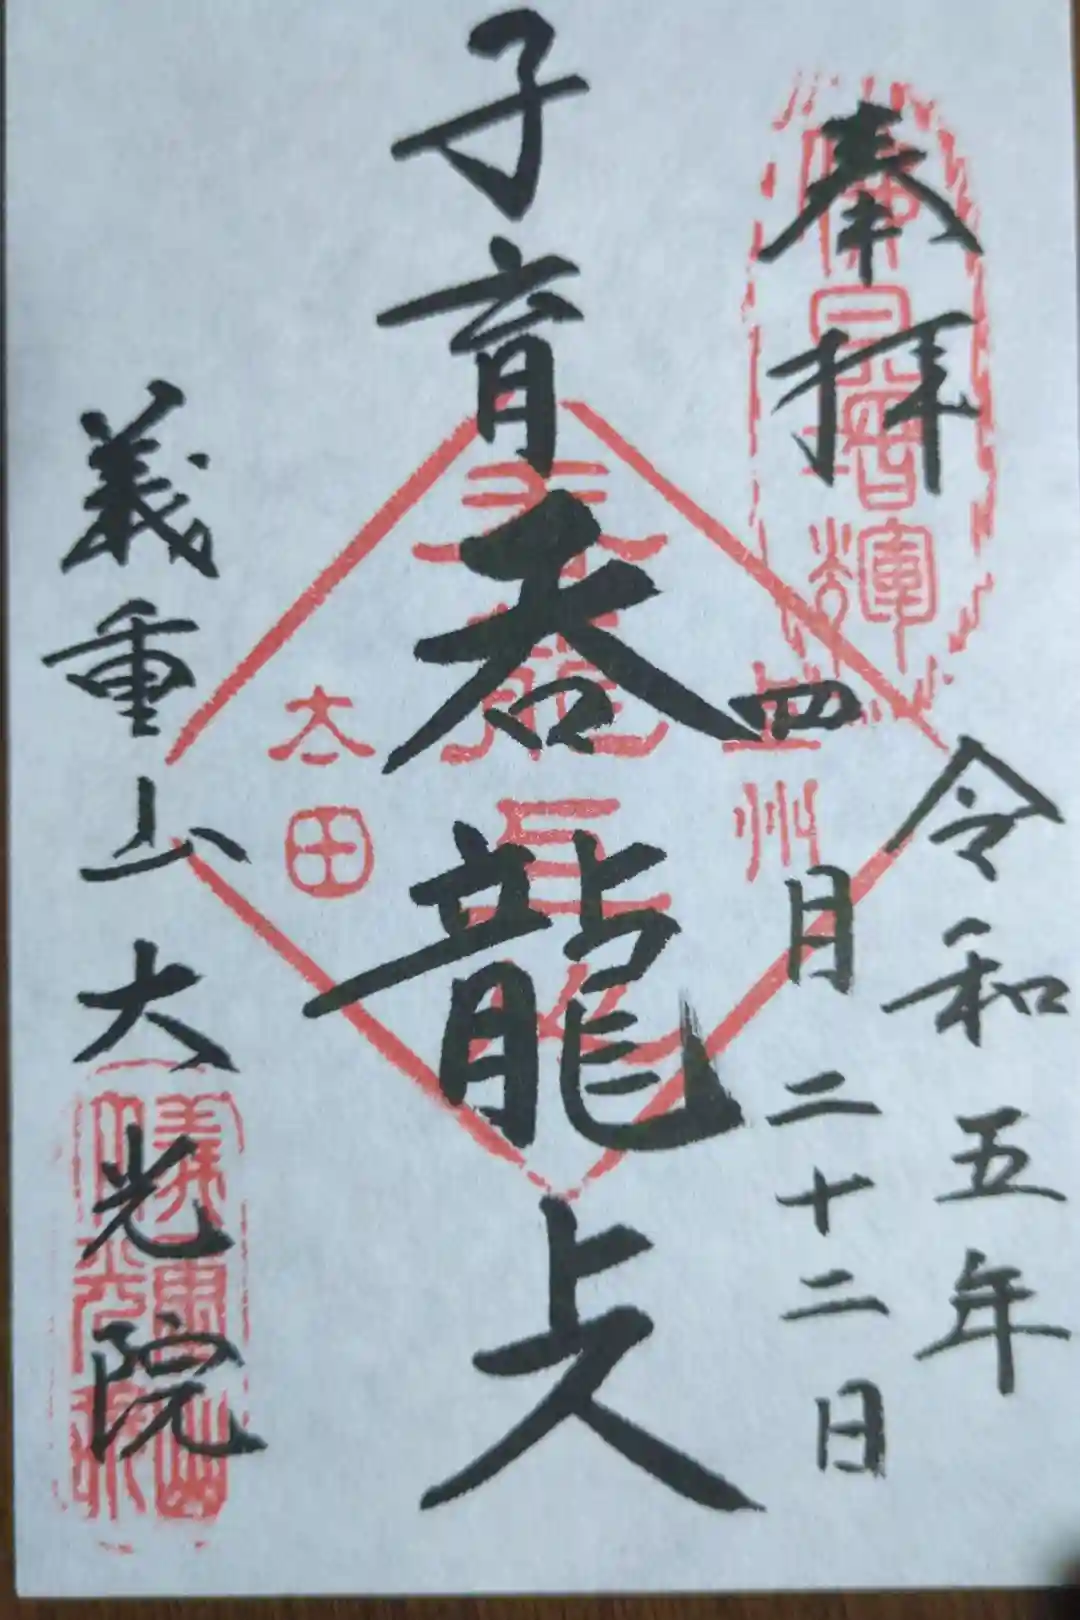 奉拝
令和五年
四月二十二日
子育呑龍上人
義重山大光院
上州
太田